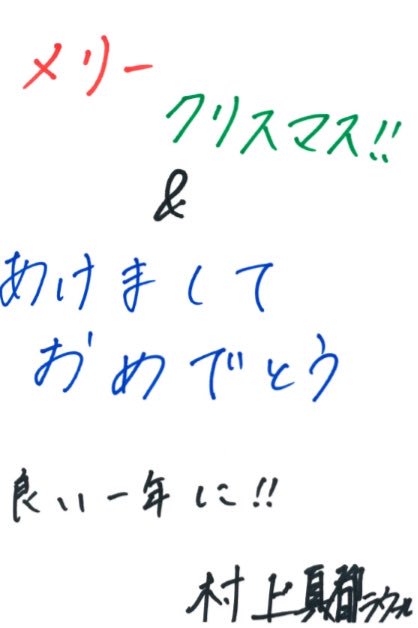 メリー
クリスマス!!
&
あけまして
おめでとう
良い一年に!!
村上真都ラウール